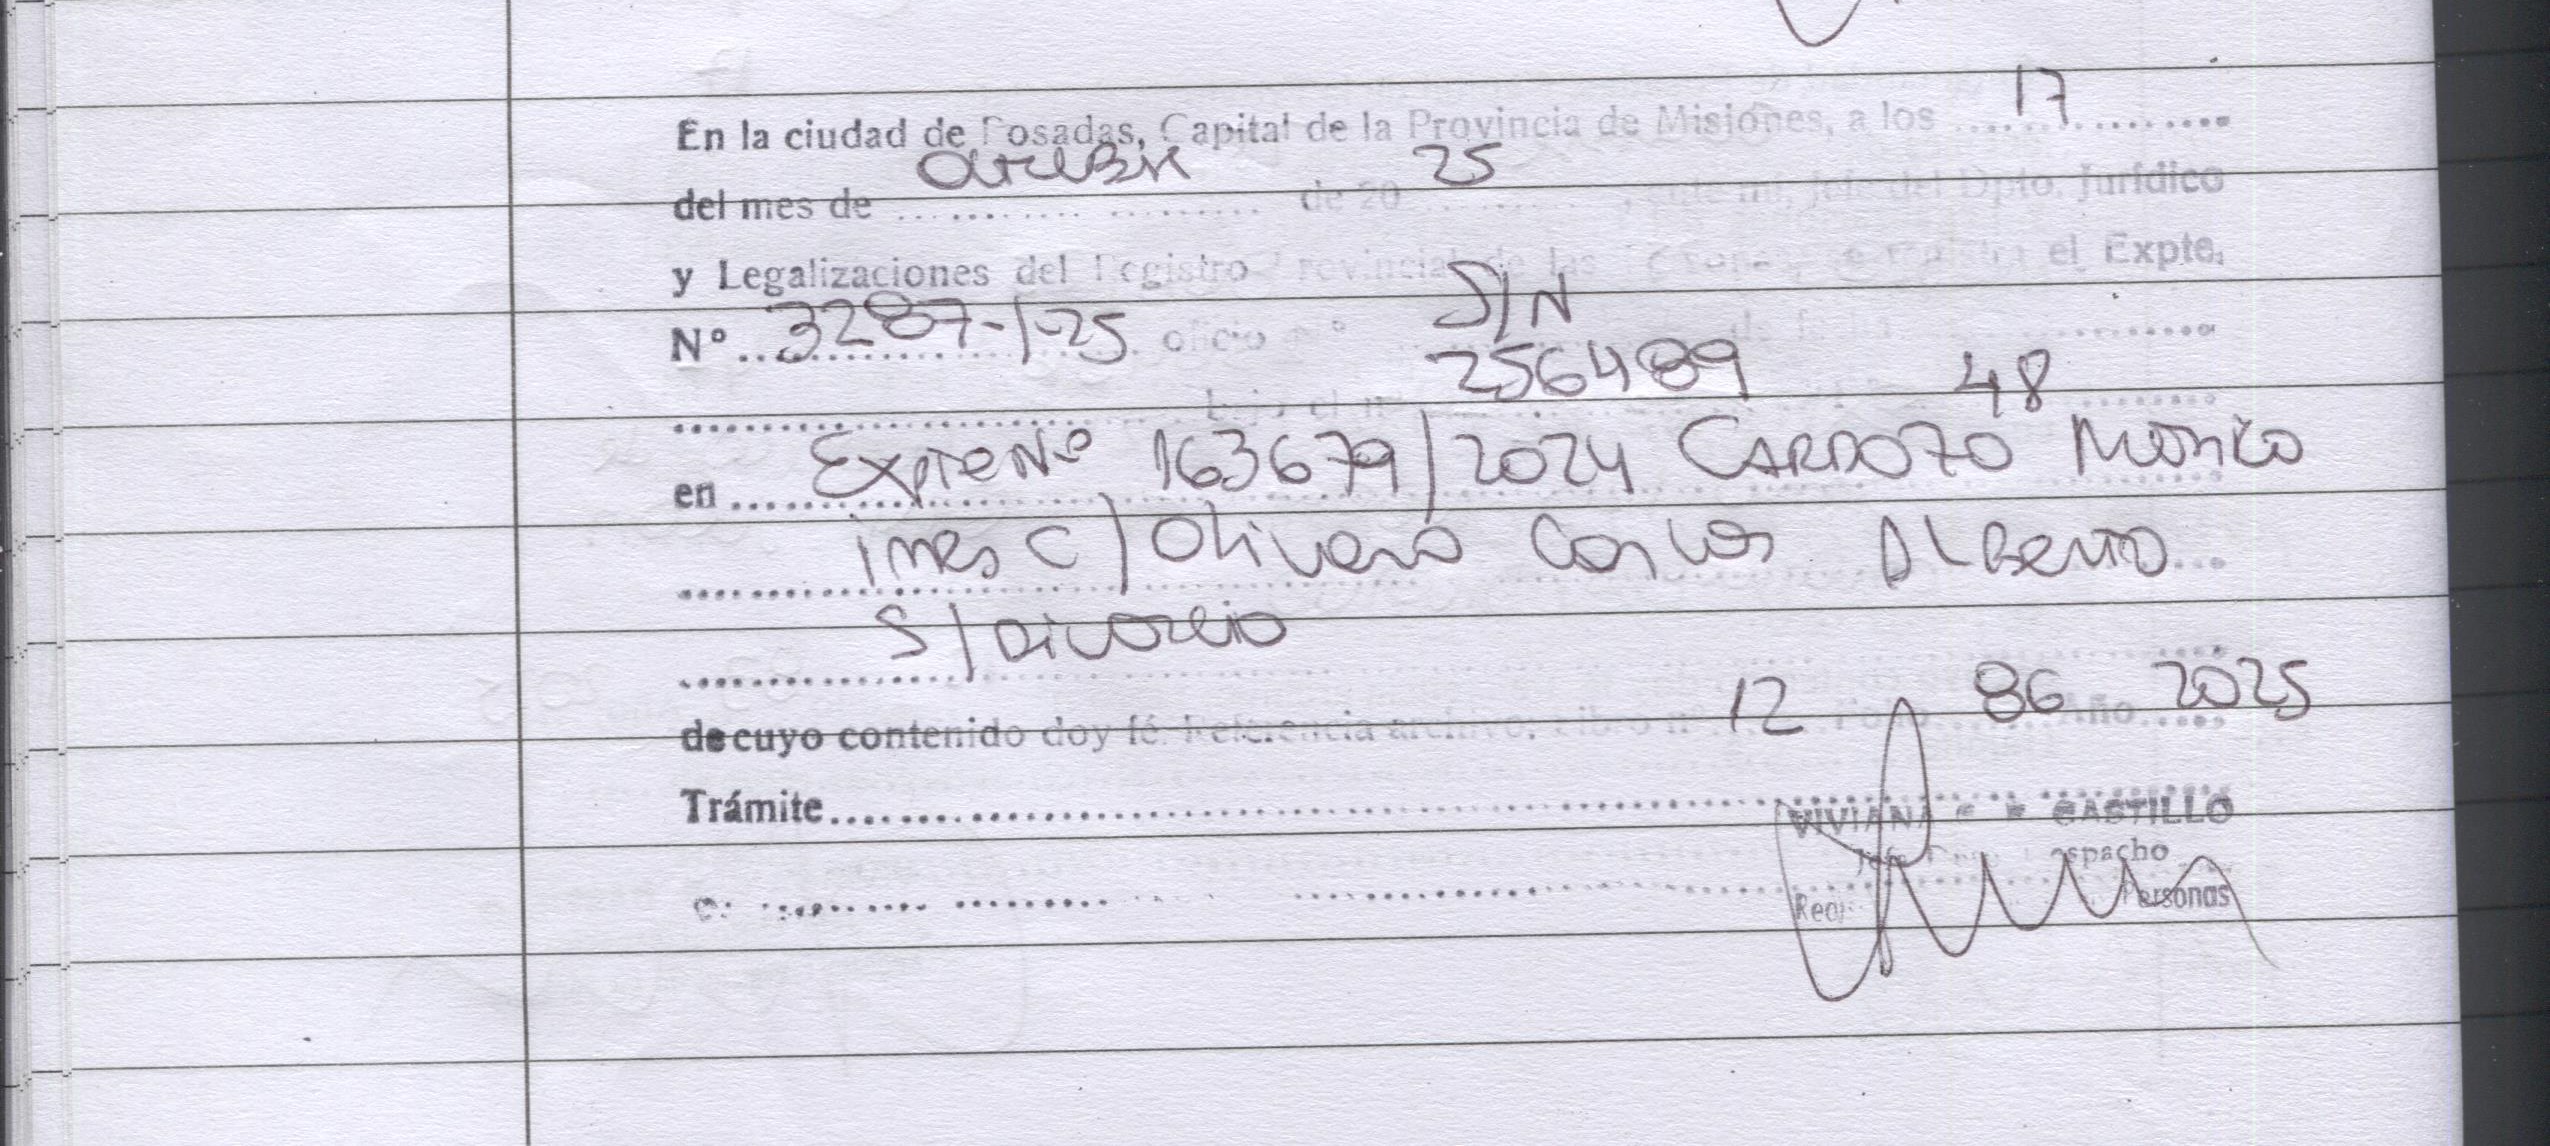 17
En la ciudad de Posadas, Capital de la Provincia de Misiones, a los ................
octubre 25
del mes de ........................ de 20 .......... , ante mi, Jefe del Dpto. Jurídico
y Legalizaciones del Registro Provincial de las Personas, se registra el Expte.
3287-1-25 S/N
Nº ........................ oficio nº
256489 48
bajo el nº
Expte Nº 163679/2024 CARDOZO Monica
en
ines C/ Olivera Carlos Alberto
S/ Divorcio
12 86 2025
de cuyo contenido doy fé. Referencia archivo: Libro nº ...... Folio ...... Año ......
Trámite
VIVIANA CASTILLO
Despacho
Personas